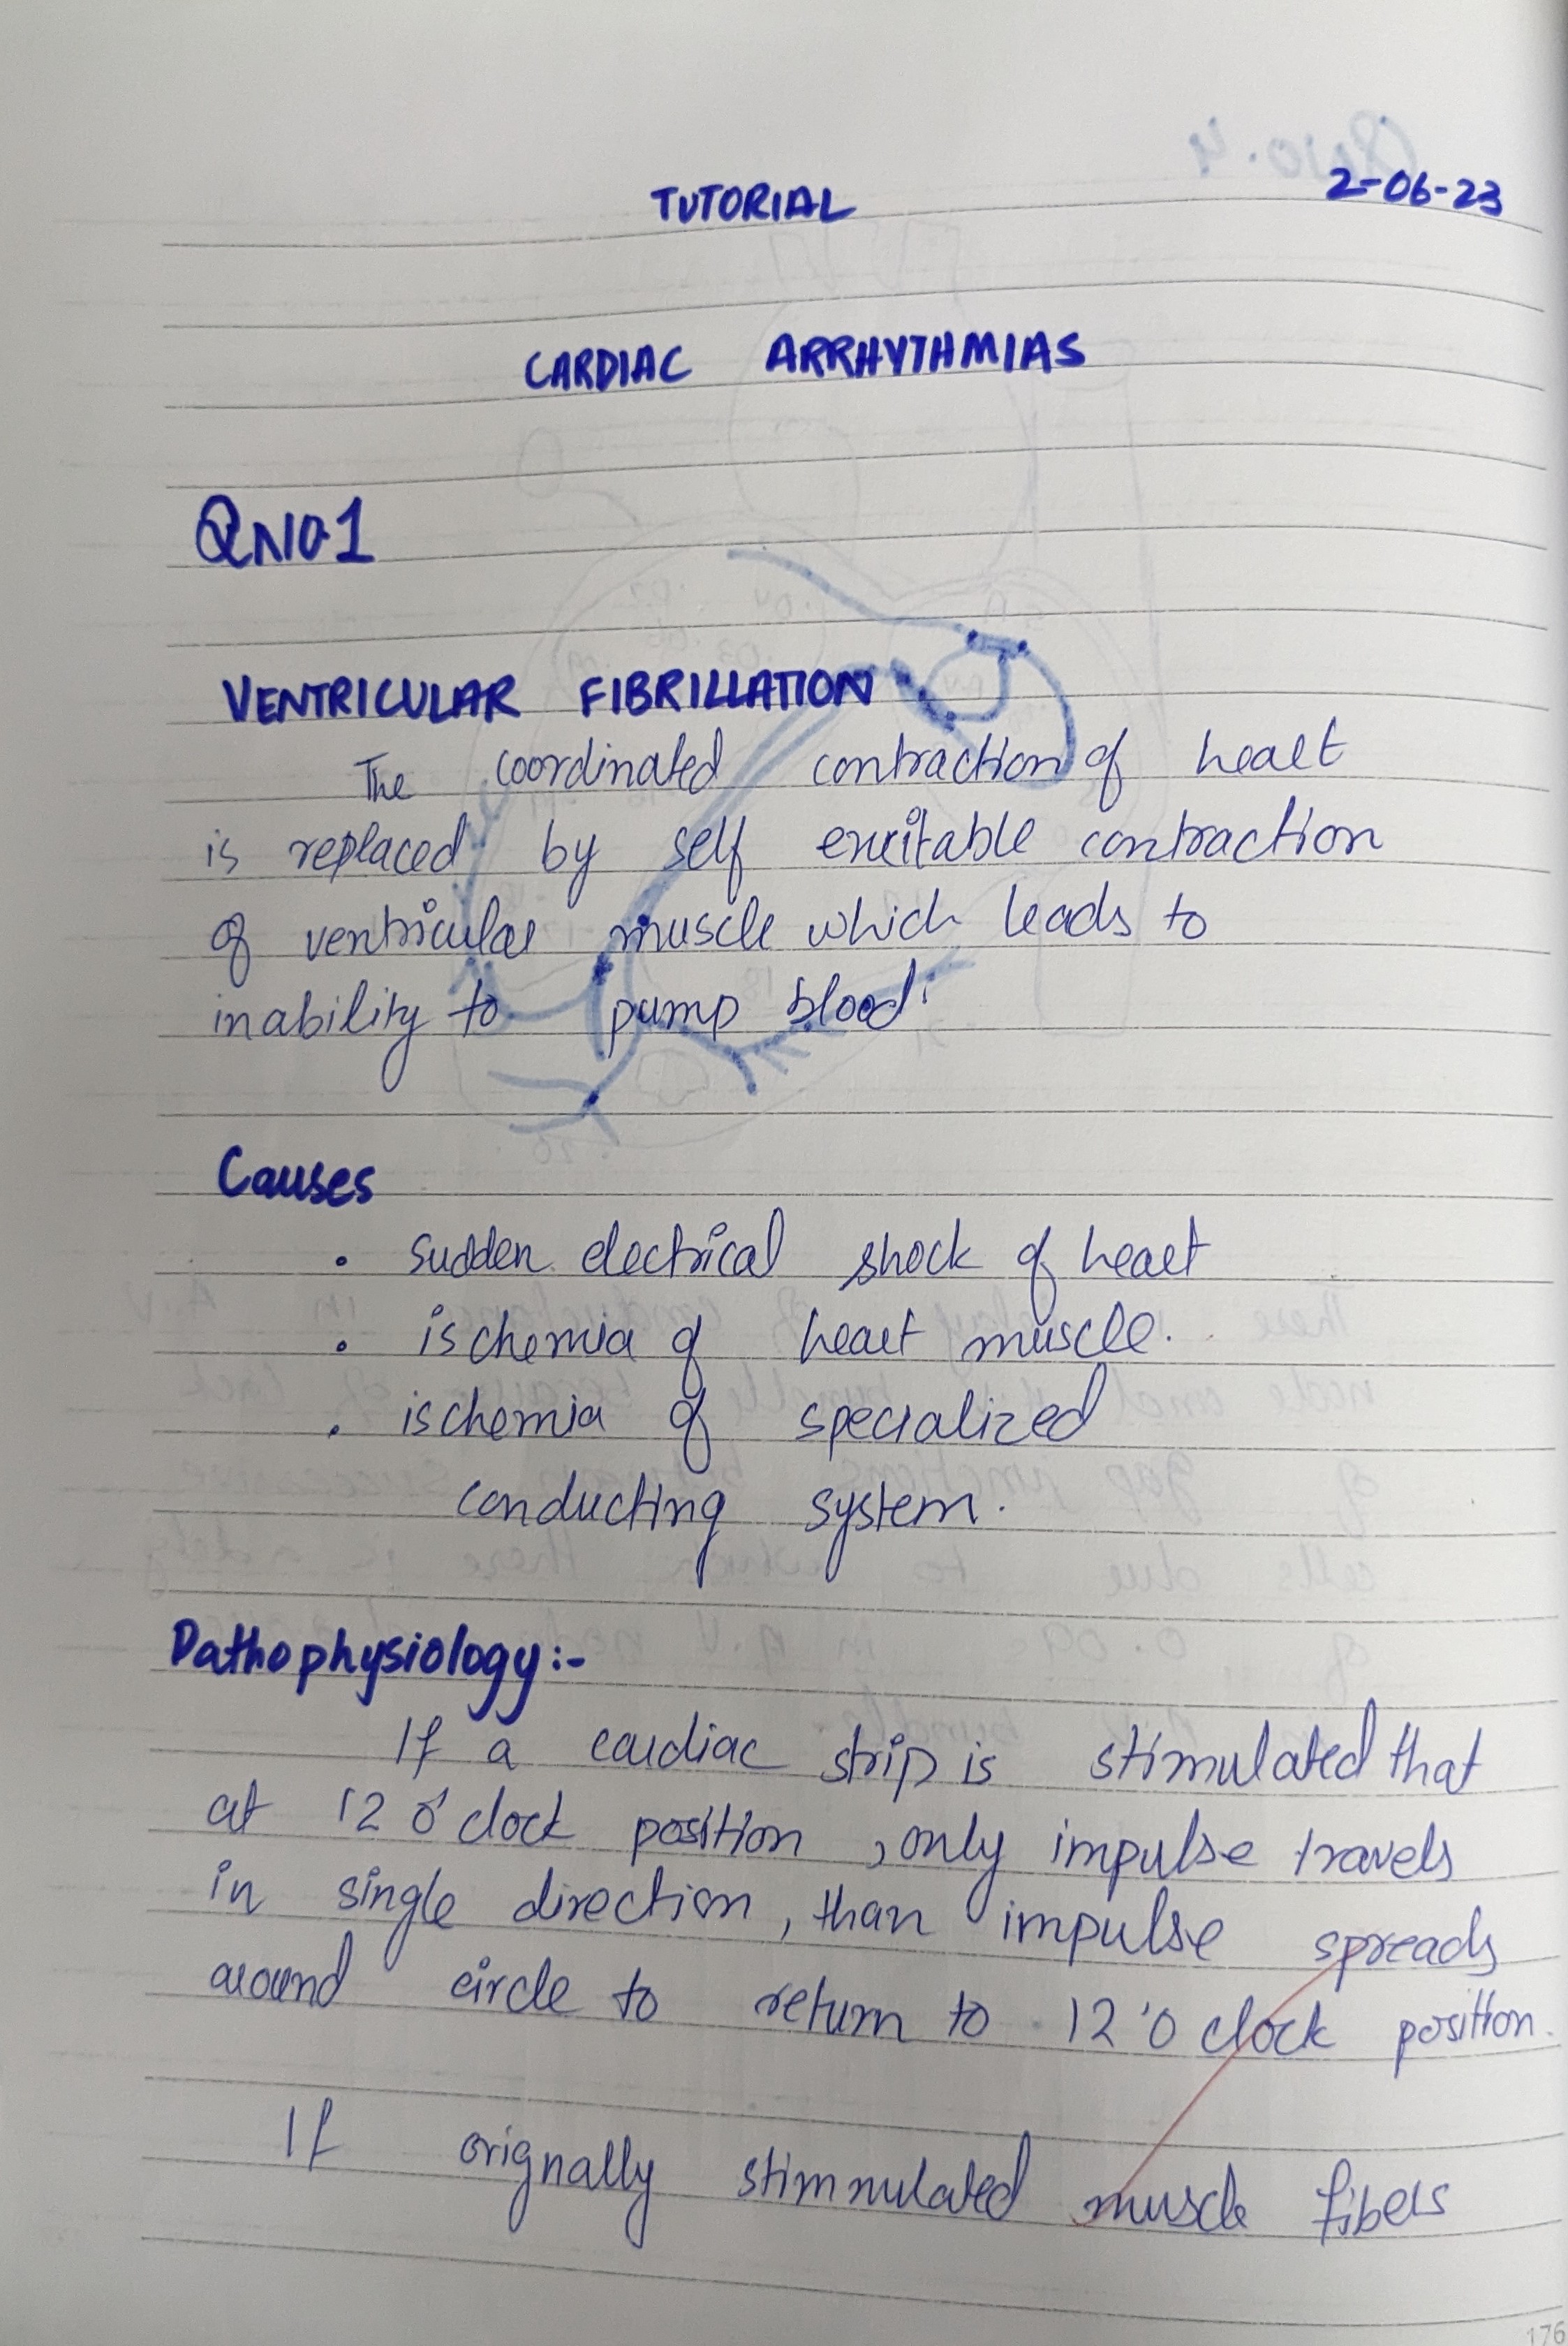 TUTORIAL
2-06-23
CARDIAC ARRHYTHMIAS
QNO1
VENTRICULAR FIBRILLATION
The coordinated contraction of heart
is replaced by self excitable contraction
of ventricular muscle which leads to
inability to pump blood.
Causes
• sudden electrical shock of heart
• ischemia of heart muscle.
• ischemia of specialized
conducting system.
Pathophysiology:-
If a cardiac strip is stimulated that
at 12 o'clock position, only impulse travels
in single direction, than impulse spreads
around circle to return to 12'o clock position.
If orignally stimmulated muscle fibers
176